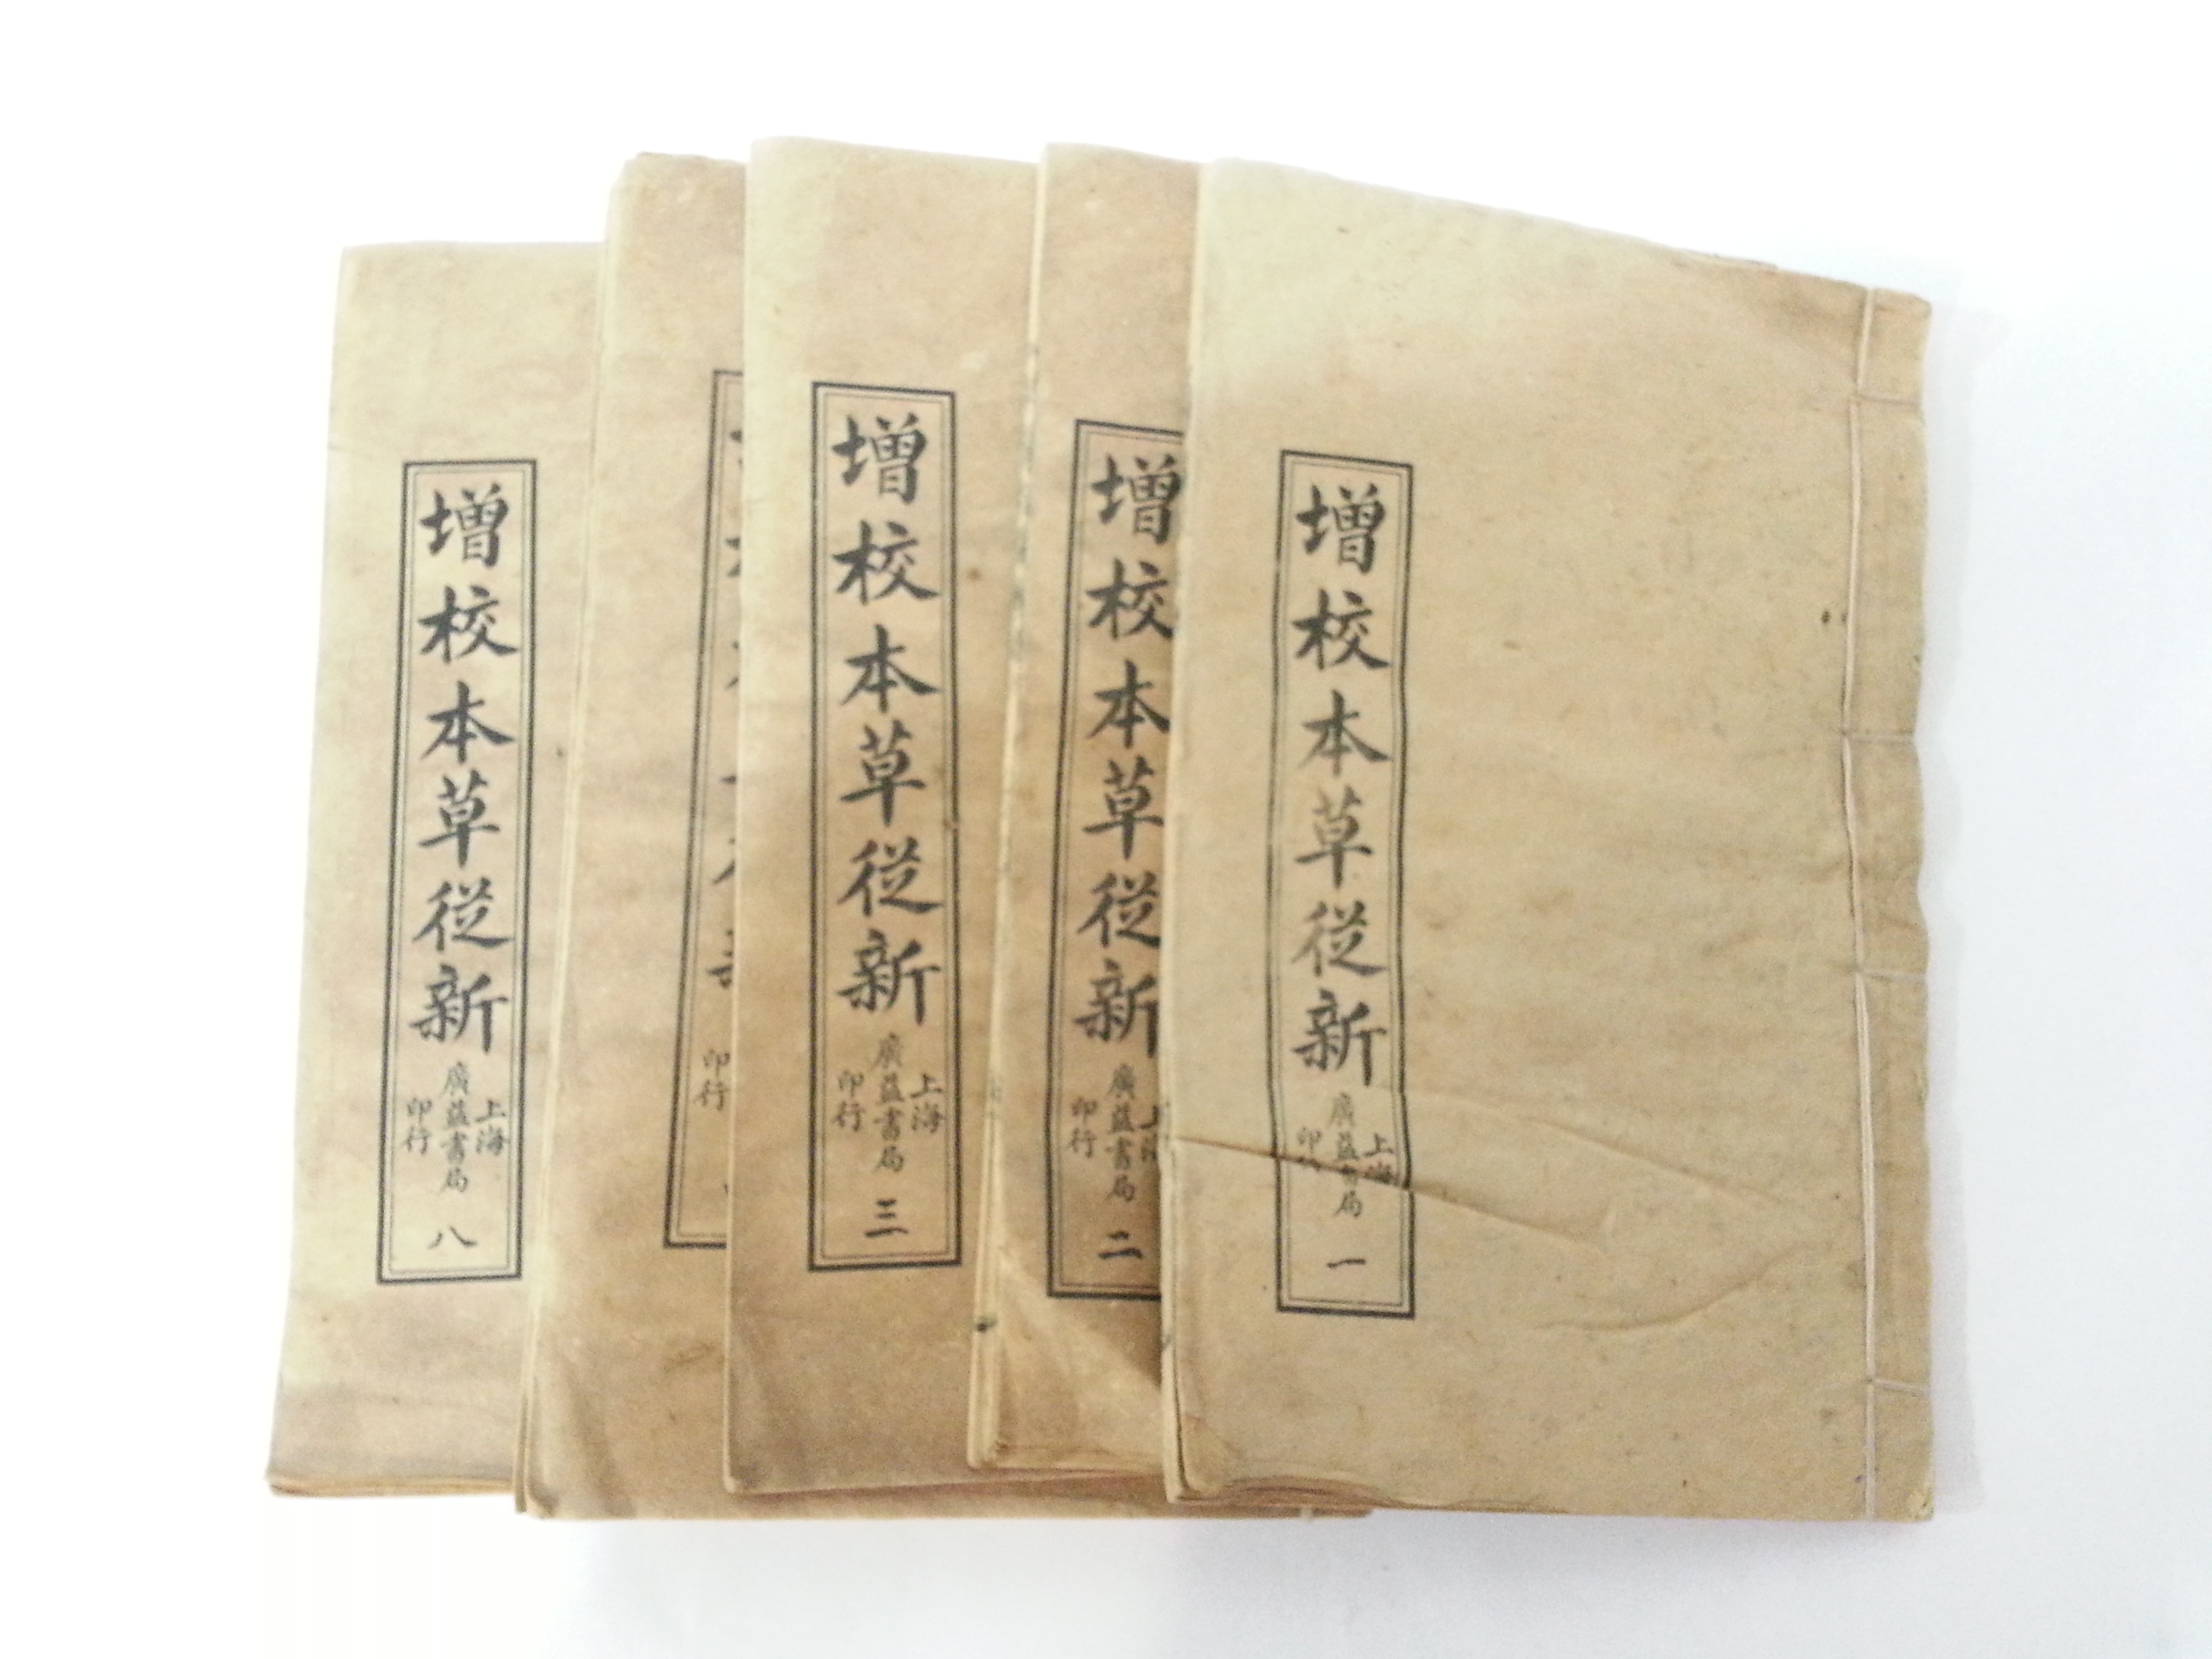 增校本草從新
上海
廣益書局
印行
一
增校本草從新
上海
廣益書局
印行
二
增校本草從新
上海
廣益書局
印行
三
印行
增校本草從新
上海
廣益書局
印行
八